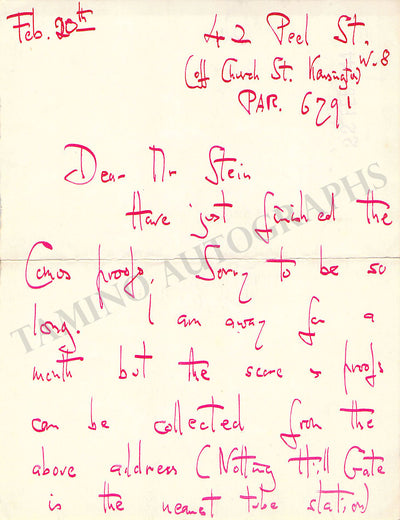 Feb. 20th
42 Peel St.
(off Church St. Kensington) W.8
PAR. 6791
Dear Mr Stein
Have just finished the
proofs. Sorry to be so
long. I am away for a
month but the score & proofs
can be collected from the
above address (Notting Hill Gate
is the nearest tube station)
TAMINO AUTOGRAPHS